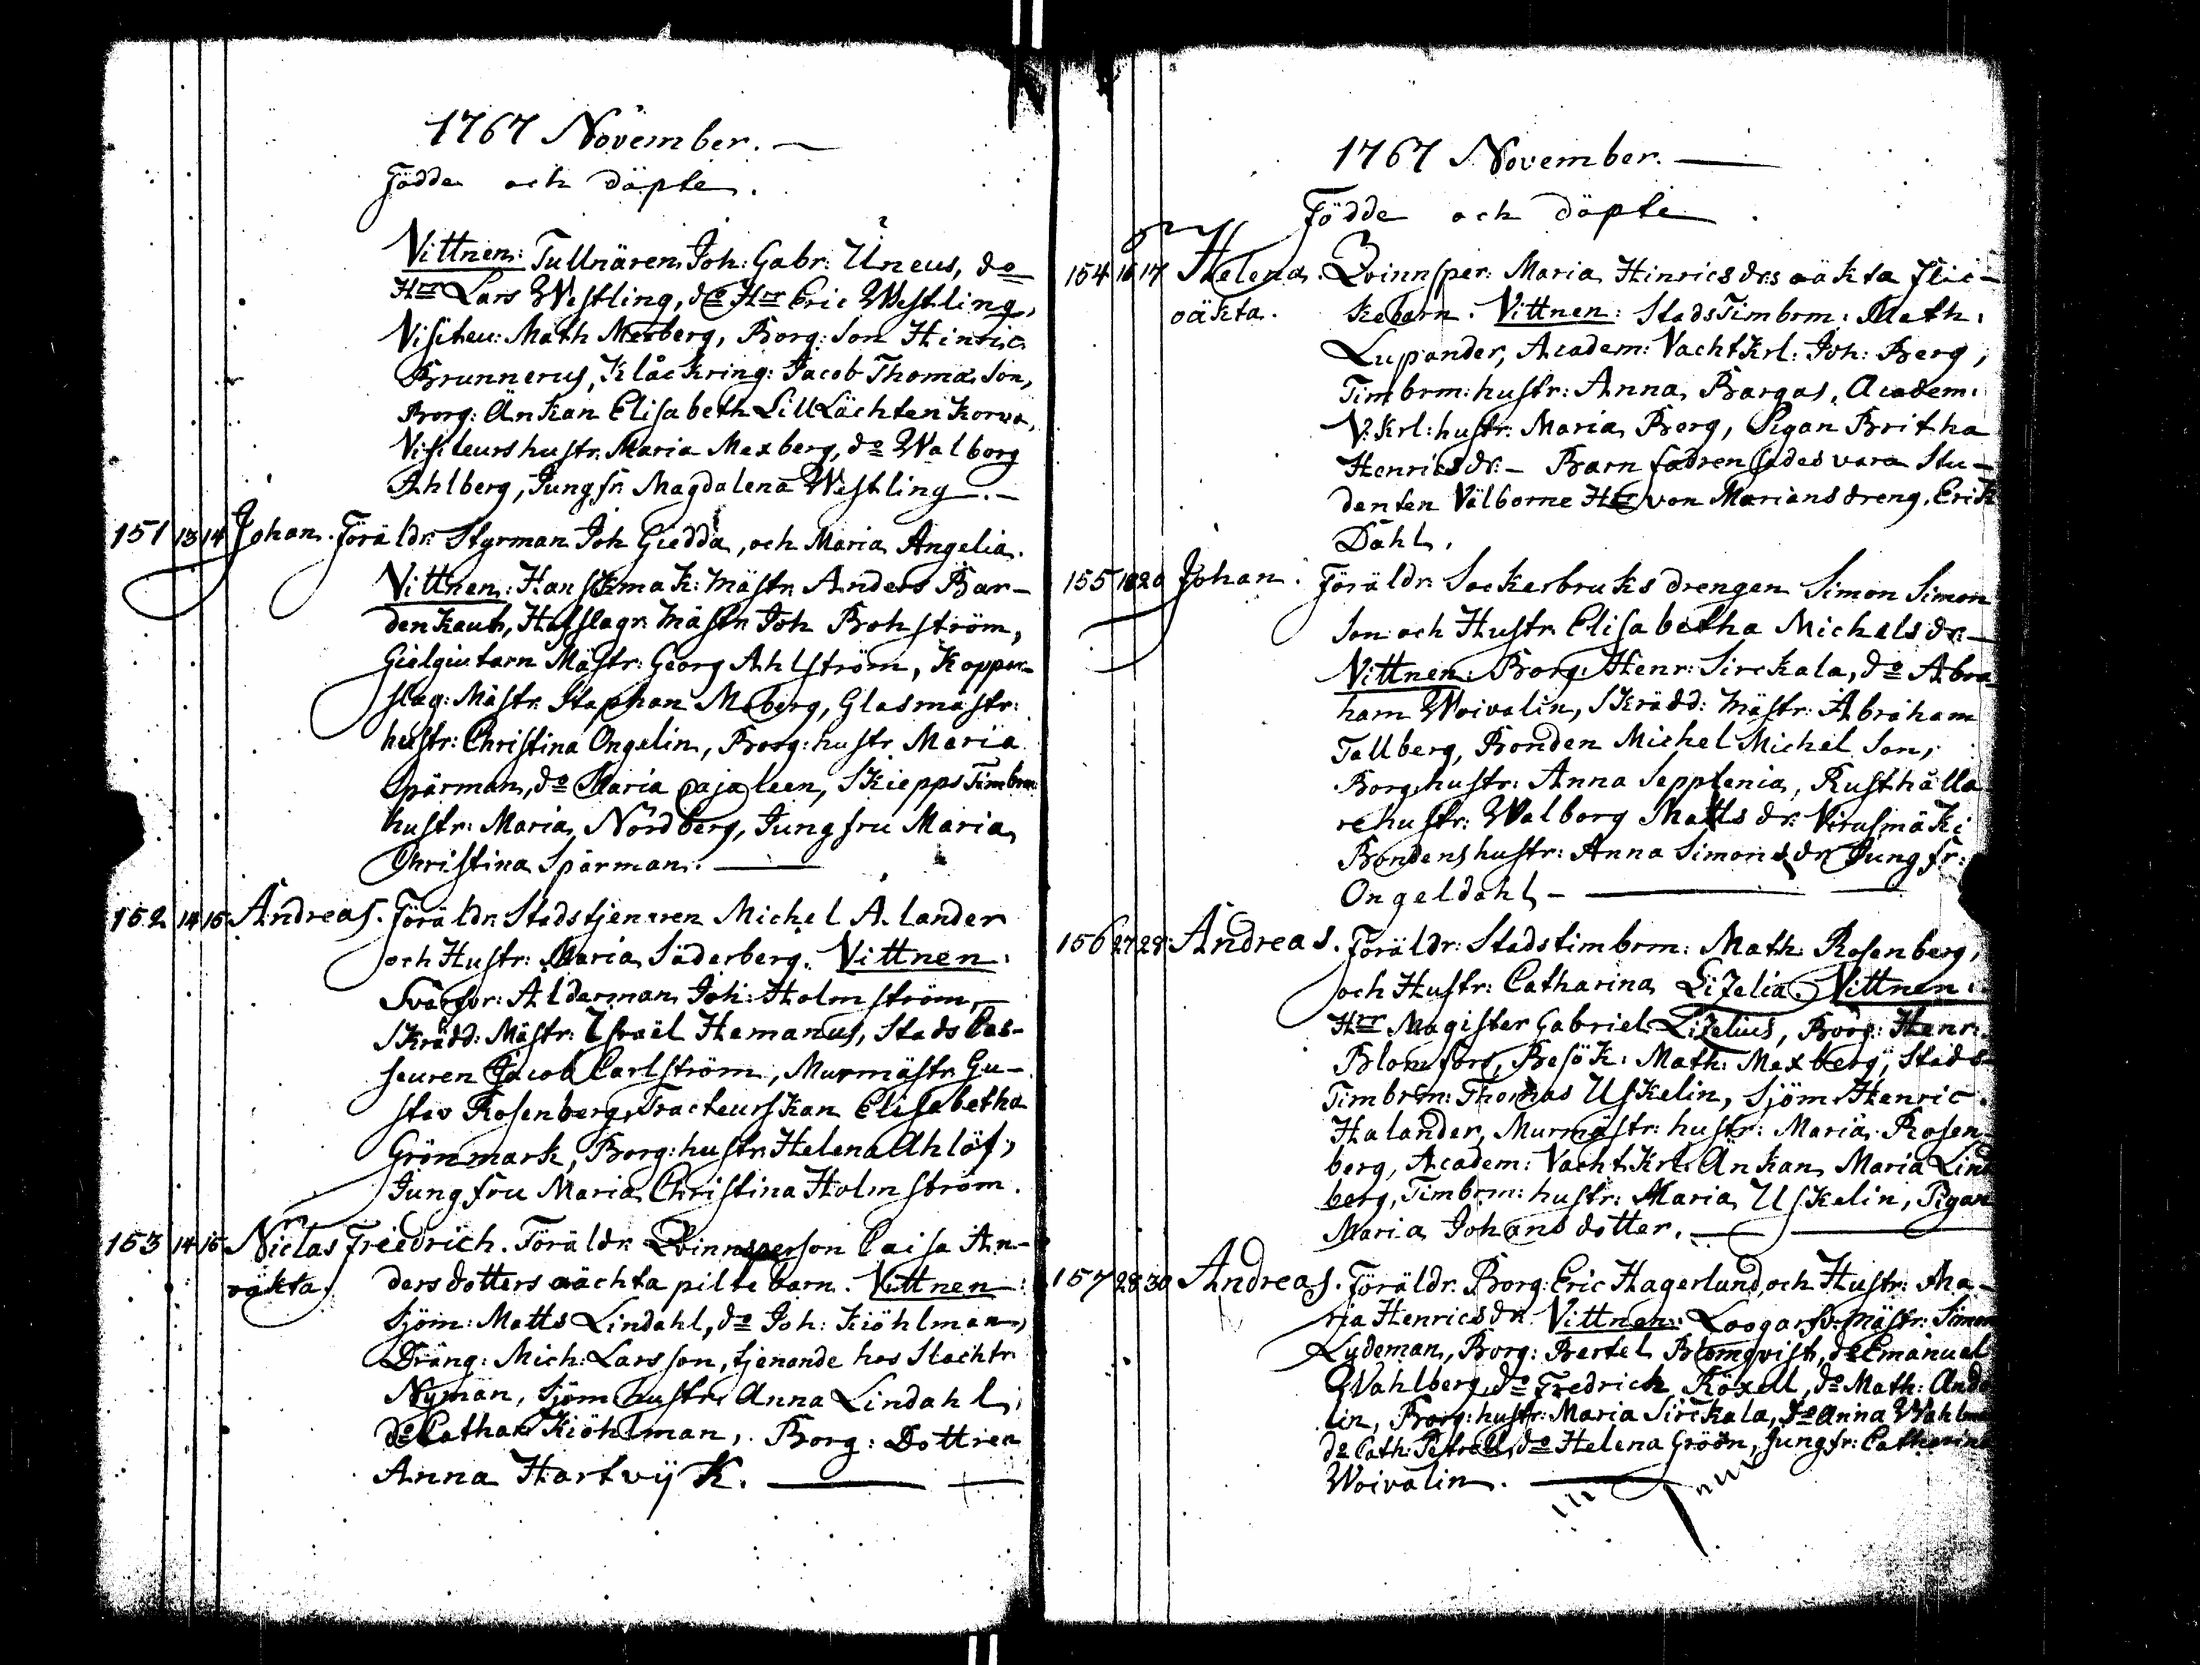 1767 November.
Födde och döpte.
Vittnen: Tullnären Joh: Gabr: Uneus, do
Hrr Lars Westling, do Hrr Eric Westling,
Visiteu: Math Mexberg, Borg: Son Hinric
Brunnerus, Klåckring: Jacob Thomas Son,
Borg: Änkan Elisabeth Lill
Visiteurs hustr: Maria Mexberg, do Walborg
Ahlberg, Jungfr: Magdalena Westling.
151 13 14 Johan. Föräldr: Styrman Joh Giedda, och Maria Angelia.
Vittnen: Handskmak: Mästr: Anders Bar-
Mästr: Joh Bohström,
Mästr: Georg Ahlström, Koppar-
slag: Mästr: Staphan Moberg, Glasmästr:
hustr: Christina Ongelin, Borg: hustr Maria
Spårman, do Maria Cajaleen, Skiepps Timbrm:
hustr: Maria Nordberg, Jungfru Maria
Christina Spårman.
152 14 15 Andreas. Föräldr: Stadstjenaren Michel Alander
och Hustr: Maria Säderberg. Vittnen:
Svarfvr: Alderman Joh: Holmström,
Skrädd: Mästr: Israël Hemanus, Stads Cas-
seuren Jacob Carlström, Murmästr: Gu-
stav Rosenberg, Tracteurskan Elisabetha
Grönmark, Borg: hustr: Helena Ahlöf,
Jungfru Maria Christina Holmström.
153 14 15 Niclas Friedrich. Föräldr: Qvinnsperson Caisa An-
oäkta. dersdotters oächta piltebarn. Vittnen:
Sjöm: Matts Lindahl, do Joh: Kiöhlman,
Dräng: Mich: Larsson, tjenande hos Slachtr:
Nyman, Sjöm hustr: Anna Lindahl,
do Cathar Kiöhlman, Borg: Dottren
Anna Hartvijk.
1767 November.
Födde och döpte
154 16 17 Helena. Qvinnsper: Maria Hinricsdrs oäkta flic-
oäkta. kebarn. Vittnen: StadsTimbrm: Math:
Lupander, Academ: Vachtkrl: Joh: Berg,
Timbrm: hustr: Anna Bargas, Academ:
V:krl: hustr: Maria Berg, Pigan Britha
Henricsdr: Barnfadren sades vara Stu-
denten Välborne Hr von Mariansdreng, Erik
Dahl.
155 18 20 Johan. Föräldr: Sockerbruks drengen Simon Simon
Son och Hustr: Elisabetha Michelsdr:
Vittnen: Borg: Henr: Sirckala, do Abra-
ham Woivalin, Skrädd: Mästr: Abraham
Tallberg, Bonden Michel Michel Son,
Borg: hustr: Anna Sepplenia, Rusthålla
rehustr: Walborg Mattsdr: Virusmäki
Bondens hustr: Anna Simonsdr: Jungfr:
Ongeldahl
156 27 28 Andreas. Föräldr: Stadstimbrm: Math: Rosenberg,
och Hustr: Catharina Lizelia. Vittnen:
Hrr Magister Gabriel Lizelius, Borg: Henr:
Blomfors, Besök: Math: Mexberg, Stads
Timbrm: Thomas Uskelin, Sjöm Henric
Halander, Murmästr: hustr: Maria Rosen-
berg, Academ: Vachtkrl: Änkan Maria Lind
berg, Timbrm: hustr: Maria Uskelin, Pigan
Maria Johans dotter.
157 28 30 Andreas. Föräldr: Borg: Eric Hagerlund, och Hustr: Ma-
ria Henricsdr: Vittnen: Mästr: Simon
Lydeman, Borg: Bertel Blomqvist, do Emanuel
Wahlberg, do Fredrick Röxell, do Math: Ande
lin, Borg: hustr: Maria Sirckala, do Anna
do Cath: Petrell, do Helena Gröön, Jungfr: Catharina
Woivalin.